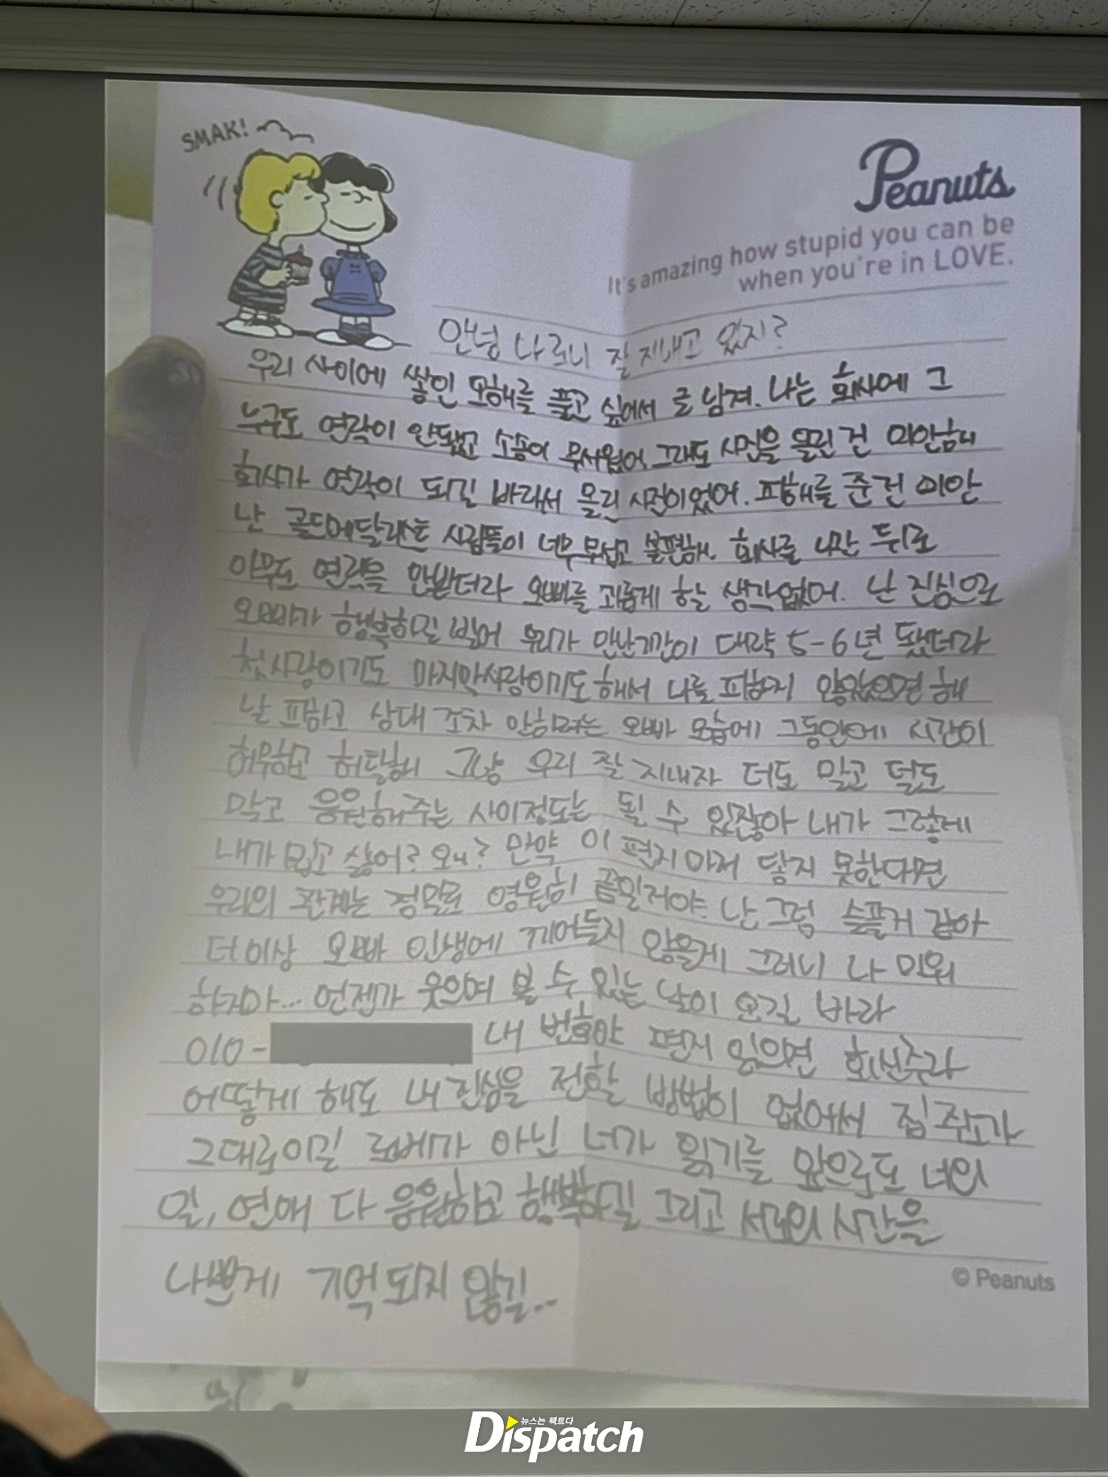 SMAK!
Peanuts
It's amazing how stupid you can be
when you're in LOVE.
안녕 나르니 잘 지내고 있지?
우리 사이에 쌓인 오해를 풀고 싶어서 글 남겨. 나는 회사에 그
누구도 연락이 안됐고 소송이 무서웠어. 그래도 사진을 올린 건 미안해
회사가 연락이 되길 바라서 올린 사진이었어. 피해를 준건 미안
난 골드메달리스트 사람들이 너무 무섭고 불편해. 회사를 나간 뒤로
아무도 연락을 안받더라 오빠를 괴롭게 할 생각없어. 난 진심으로
오빠가 행복하길 빌어 우리가 만난기간이 대략 5-6년 됐더라
첫사랑이기도 마지막사랑이기도 해서 나를 피하지 않았으면 해
날 피하고 상대 조차 안하려는 오빠 모습에 그동안에 시간이
허무하고 허탈해 그냥 우리 잘 지내자 더도 말고 덜도
말고 응원해주는 사이정도는 될 수 있잖아 내가 그렇게
내가 밉고 싫어? 왜? 만약 이 편지마저 닿지 못한다면
우리의 관계는 정말로 영원히 끝일거야. 난 그럼 슬플거 같아
더이상 오빠 인생에 끼어들지 않을게 그러니 나 미워
하지마... 언젠가 웃으며 볼 수 있는 날이 오길 바라
010- 내 번호야 편지 읽으면 회신주라
어떻게 해도 내 진심을 전할 방법이 없어서 집 주소가
그대로이길 로베가 아닌 너가 읽기를 앞으로도 너의
일, 연애 다 응원하고 행복하길 그리고 서로의 시간을
나쁘게 기억되지 않길...
© Peanuts
뉴스는 팩트다
Dispatch